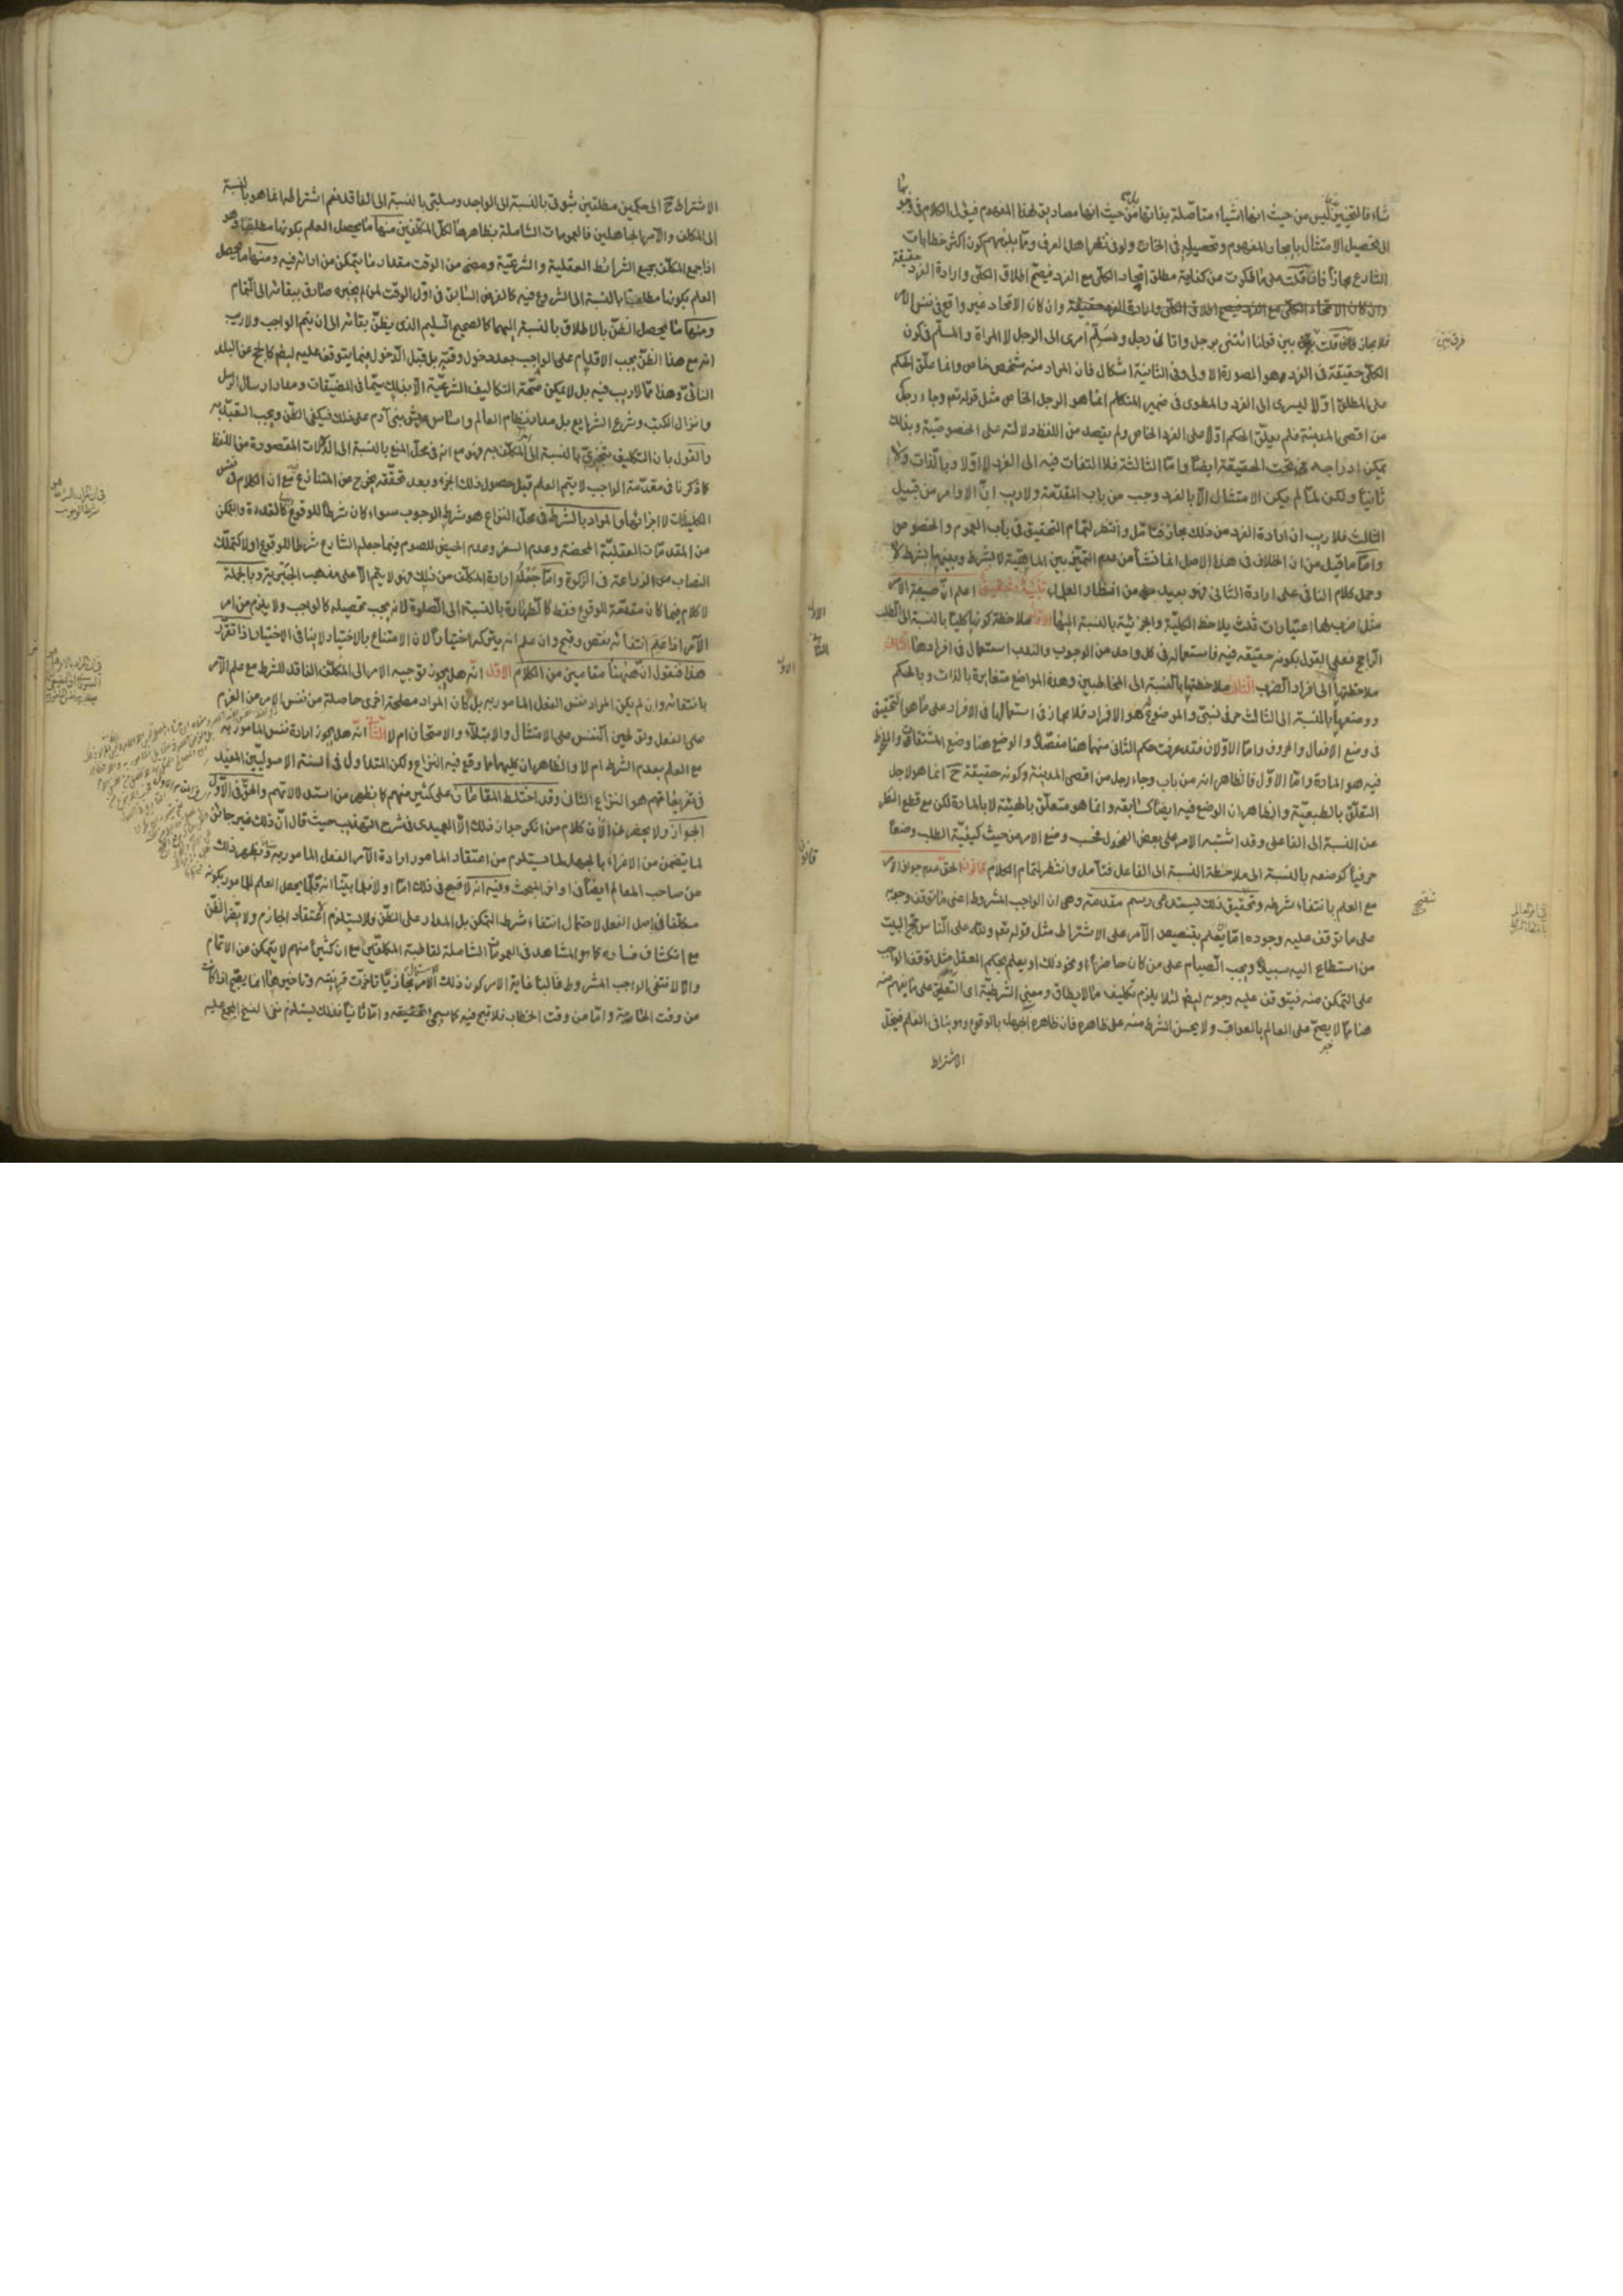 شاء فالتخيير ليس من حيث انها اشياء متأصلة بذاتها بل من حيث انها مصاديق لهذا المفهوم فيؤل الكلام في وجوبها
الى تحصيل الامتثال بايجاد المفهوم وتحصيله في الخارج ولو في نظر اهل العرف ومما يلزمهم كون اكثر خطابات
الشارع مجازا فان قلت على ما ذكرت من كفاية مطلق اتحاد الكلي مع الفرد فيصح اطلاق الكلي وارادة الفرد حقيقة
وان كان الاتحاد غير واقع في نفس الامر
فلا مجاز قلت فرق بين قولنا ائتني برجل واتاني رجل وسلم امري الى الرجل لا المراة والمسلم في كون
الكلي حقيقة في الفرد هو الصورة الاولى وفي الثانية اشكال فان المراد منه شخص خاص وانما علق الحكم
على المطلق اولا ليسري الى الفرد والمطوى في ضمير المتكلم انما هو الرجل الخاص مثل قوله تعم وجاء رجل
من اقصى المدينة فلم يعلق الحكم اولا على الفرد الخاص ولم يقصد من اللفظ دلالته على الخصوصية وبذلك
يمكن ادراجه تحت الحقيقة ايضا واما الثالثة فلا التفات فيه الى الفرد لا اولا وبالذات ولا
ثانيا ولكن لما لم يمكن الامتثال الا بالفرد وجب من باب المقدمة ولا ريب ان الاوامر من قبيل
الثالث فلا ريب ان ارادة الفرد من ذلك مجاز فتامل وانتظر لتمام التحقيق في باب العموم والخصوص
واما ما قيل من ان الخلاف في هذا الاصل انما نشأ من عدم التمييز بين الماهية لا بشرط وبينها بشرط لا
وحمل كلام النافي على ارادة الثاني فهو بعيد من انظار العلماء تنبيه وتحقيق اعلم ان صيغة الامر
مثل اضرب لها اعتبارات ثلث يلاحظ الكلية والجزئية بالنسبة اليها الاول ملاحظة كونها كليا بالنسبة الى الطلب
الراجح فعلى القول بكونه حقيقة فيه فاستعماله في كل واحد من الوجوب والندب استعمال في افرادها الثاني
ملاحظتها الى افراد الضرب الثالث ملاحظتها بالنسبة الى المخاطبين وهذه المواضع متغايرة بالذات وبالحكم
ووضعها بالنسبة الى الثالث حرفي نسبي والموضوع هو الافراد فلا مجاز في استعمالها في الافراد على ما هو التحقيق
في وضع الافعال والحروف واما الاولان فقد عرفت حكم الثاني منهما هنا مفصلا والوضع هنا وضع المشتقات
فيه هو المادة واما الاول فالظاهر انه من باب وجاء رجل من اقصى المدينة وكونه حقيقة ح انما هو لاجل
التعلق بالطبيعة والظاهر ان الوضع فيه ايضا كسابقه وانما هو متعلق بالهيئة لا بالمادة لكن مع قطع النظر
عن النسبة الى الفاعل وقد اشتبه الامر على بعض الفحول فحسب وضع الامر من حيث كيفية الطلب وضعا
حرفيا كوضعه بالنسبة الى ملاحظة النسبة الى الفاعل فتأمل وانتظر لتمام الكلام قانون الحق عدم جواز الامر
مع العلم بانتفاء شرطه وتحقيق ذلك يستدعي رسم مقدمة وهي ان الواجب المشروط اعني ما توقف وجوبه
على ما توقف عليه وجوده اما يعلم بتنصيص الآمر على الاشتراط مثل قوله تعم ولله على الناس حج البيت
من استطاع اليه سبيلا ويجب الصيام على من كان حاضرا ونحو ذلك او يعلم بحكم العقل مثل توقف الواجب
على التمكن منه فيتوقف عليه وجوبه ايضا لئلا يلزم تكليف ما لا يطاق ومعنى الشرطية اى التعليق على ما يفهم منه
هنا مما لا يصح على العالم بالعواقب ولا يحسن الشرط منه على ظاهره فان ظاهره الجهل بالوقوع وهو ينافي العلم فينحل
الاشتراط
فرق بين
تنقيح
الاشتراط ح الى حكمين مطلقين ثبوتي بالنسبة الى الواجد وسلبي بالنسبة الى الفاقد نعم اشتراطه انما هو بالنسبة
الى المكلف والآمر الجاهلين فالعمومات الشاملة بظاهرها لكل المكلفين منها ما يحصل العلم بكونها مطلقا وهو
اذا جمع المكلف جميع الشرائط العقلية والشرعية ومضى من الوقت مقدار ما يتمكن من ادائه فيه ومنها ما يحصل
العلم بكونها مطلقا بالنسبة الى الشروع فيه كالفرض السابق في اول الوقت لمن اخبره صادق ببقائه الى التمام
ومنها ما يحصل الظن بالاطلاق بالنسبة اليهما كالصحيح السليم الذي يظن بقائه الى ان يتم الواجب ولا ريب
انه مع هذا الظن يجب الاقدام على الواجب بعد دخول وقته بل قبل الدخول فيما يتوقف عليه ايضا كالحج عن البلد
النائي وهذا مما لا ريب فيه بل لا يمكن صحة التكاليف الشرعية الا بذلك سيما في المضيقات ومدار ارسال الرسل
وانزال الكتب وشرع الشرايع بل مدار نظام العالم واساس عيش بني آدم على ذلك فيكفي الظن ويجب التعبد به
والقول بان التكليف يتجزى بالنسبة الى المكلف به فهو مع انه في محل المنع بالنسبة الى الدلالات المقصودة من اللفظ
كما ذكرنا في مقدمة الواجب لا يتم العلم قبل حصول ذلك الجزء وبعد تحققه يخرج عن المتنازع مع ان الكلام في نفس
التكليفات لا اجزائها والمراد بالشرط في محل النزاع هو شرط الوجوب سواء كان شرطا للوقوع كالقدرة والتمكن
من المقدمات العقلية المحضة وعدم السفر وعدم الحيض للصوم فيما جعله الشارع شرطا للوقوع او لا كتملك
النصاب في الزكوة واما جعله ارادة المكلف من ذلك فهو لا يتم الا على مذهب الجبرية وبالجملة
لا كلام فيما كان مقدمة للوقوع فقط كالطهارة بالنسبة الى الصلوة لانه يجب تحصيله كالواجب ولا يلزم من امر
الآمر اذا علم انتفائه نقص وقبح وان علم انه يتركه اختيارا لان الامتناع بالاختيار لا ينافي الاختيار اذا تقرر
هذا فنقول ان ههنا مقامين من الكلام الاول انه هل يجوز توجيه الامر الى المكلف الفاقد للشرط مع علم الآمر
بانتفائه وان لم يكن المراد نفس الفعل المامور به بل كان المراد مصلحة اخرى حاصلة من نفس الامر من العزم
على الفعل وتوطين النفس على الامتثال والابتلاء والامتحان ام لا الثاني انه هل يجوز ارادة نفس المامور به
مع العلم بعدم الشرط ام لا والظاهر ان كليهما مما وقع فيه النزاع ولكن المتداول في السنة الاصوليين المفيد
في تفريعاتهم هو النزاع الثاني وقد اختلط المقامان على كثير منهم كما يظهر من استدلالاتهم والحق في الاول
الجواز ولا يحضرني الآن كلام من انكر جواز ذلك الا العميدي في شرح التهذيب حيث قال ان ذلك غير جائز
لما يتضمن من الاغراء بالجهل لما يستلزم من اعتقاد المامور ارادة الآمر الفعل المامور به ويظهر ذلك
من صاحب المعالم ايضا في اواخر المبحث وفيه انه لا قبح في ذلك اما اولا فلما بينا انه قلما يحصل العلم للمامور بكونه
مكلفا في اصل الفعل لاحتمال انتفاء شرط التمكن بل المدار على الظن فلا يستلزم الاعتقاد الجازم ولا يضر الظن
مع انكشاف فساده كما هو المشاهد في العمومات الشاملة لقاطبة المكلفين مع ان كثيرا منهم لا يتمكن من الاتمام
والا لانتفى الواجب المشروط غالبا غاية الامر كون ذلك الاستعمال مجازيا تأخرت قرينته وتاخيرها انما يقبح اذا كانت
من وقت الحاجة واما من وقت الخطاب فلا قبح فيه كما سيجئ تحقيقه واما ثانيا فذلك يستلزم نفى النسخ المجمع عليه
الاول
الثاني
قانون